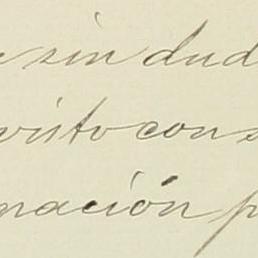 sin dud
visto con
mación p